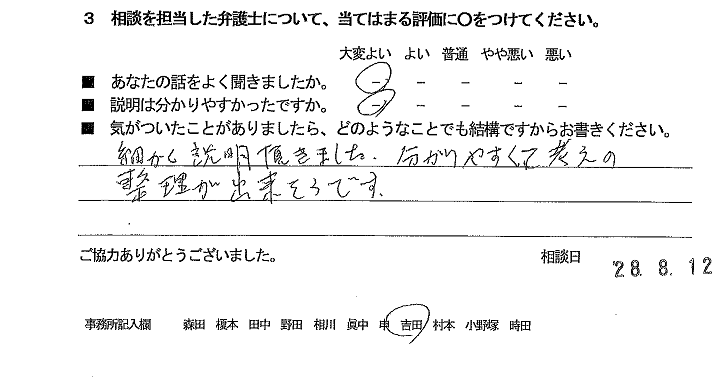 3 相談を担当した弁護士について、当てはまる評価に〇をつけてください。
大変よい よい 普通 やや悪い 悪い
■ あなたの話をよく聞きましたか。 - - - - -
■ 説明は分かりやすかったですか。 - - - - -
■ 気がついたことがありましたら、どのようなことでも結構ですからお書きください。
細かく説明頂きました。分かりやすくて考えの
整理が出来そうです。
ご協力ありがとうございました。 相談日 '28. 8. 12
事務所記入欄 森田 榎本 田中 野田 相川 眞中 申 吉田 村本 小野塚 時田